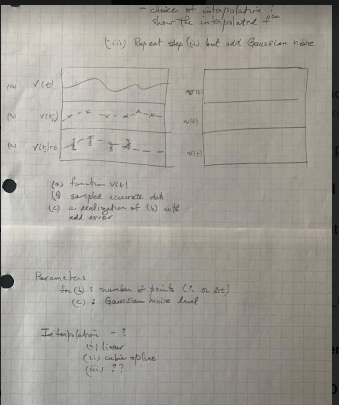 - choice of interpolation :
show the interpolated fcn
(iii) Repeat step (ii) but add Gaussian noise
(a) V(t)
(b) V(ti)
(c)
(a) function V(t)
(b) sampled accurate data
(c) a realization of (b) with
add error
Parameters
for (b) : number of points (?, or Δt)
(c) : Gaussian noise level
Interpolation - ?
(i) linear
(ii) cubic spline
(iii) ??